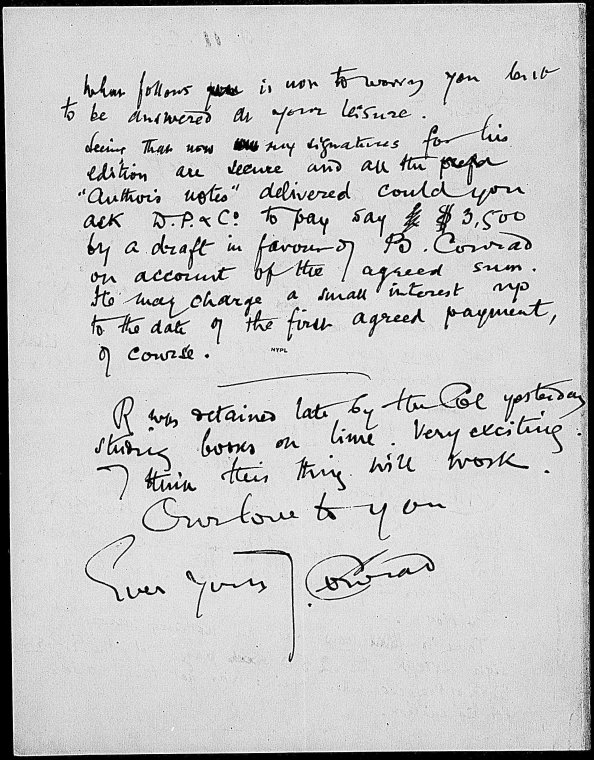 What follows is not to worry you but
to be answered at your leisure.
Seeing that now my signatures for his
edition are secure and all the
"Author's notes" delivered could you
ask D.P. & Co to pay say $ 3,500
by a draft in favour of B. Conrad
on account of the agreed sum.
He may charge a small interest up
to the date of the first agreed payment,
of course.
NYPL
R was detained late by the Col yesterday
studying books on lime. Very exciting.
I think this thing will work.
Our love to you
Ever yours J. Conrad